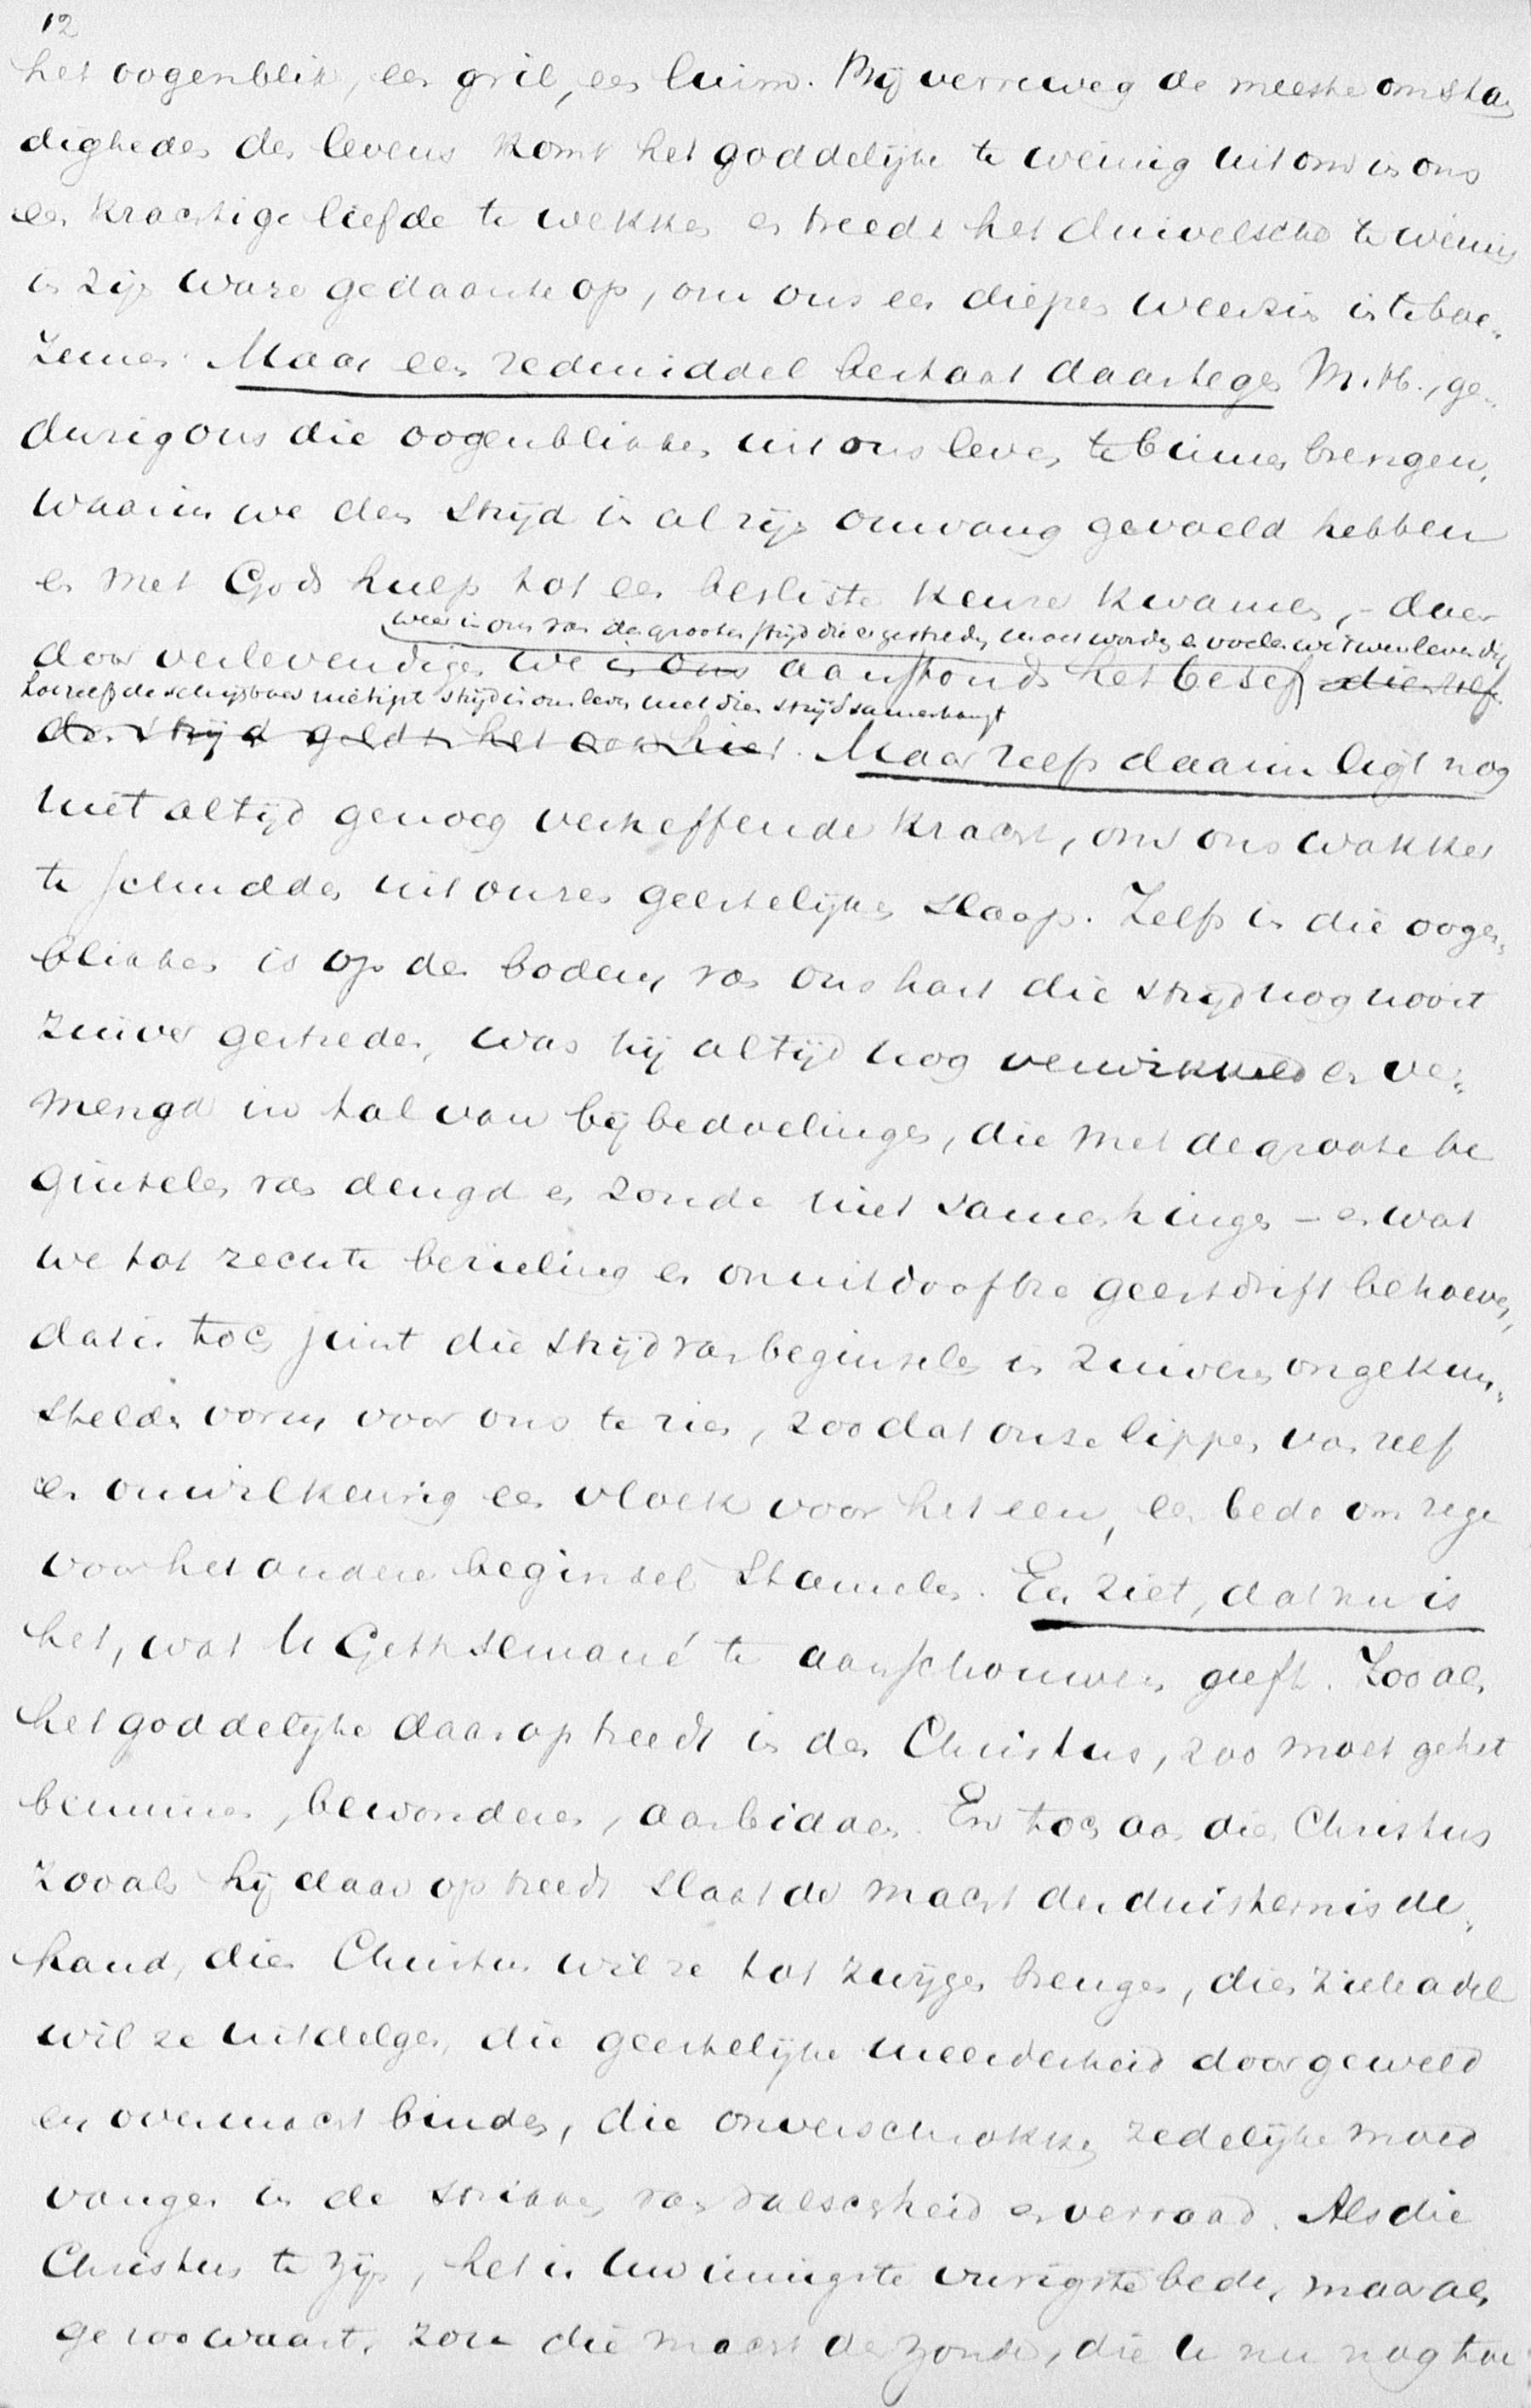 12
het oogenblik, een gril, een luim. Bij verreweg de meeste omstan
digheden des levens komt het goddelijke te weinig uit om in ons
een krachtige liefde te wekken en treedt het duivelsche te weinig
in zijn ware gedaante op, om ons een diepen weerzin in te boe-
zemen. Maar een redmiddel bestaat daartegen M. H., ge-
durig ons die oogenblikken uit ons leven te binnen brengen,
waarin we den strijd in al zijn omvang gevoeld hebben
en met Gods hulp tot een besliste keuze kwamen, - daar
weer in ons van den grooten strijd die er gestreden moet worden en voelen we weer levendig
door verlevendigen we in ons aanstonds het besef dienzelf
hoezeer de schijnbaar nietigste strijd in ons leven met dien strijd samenhangt
den strijd geldt het ook hier. Maar zelfs daarin ligt nog
niet altijd genoeg verheffende kracht, om ons wakker
te schudden uit onzen geestelijken slaap. Zelfs in die oogen-
blikken is op den bodem van ons hart die strijd nog nooit
zuiver gestreden, was hij altijd nog verwikkeld en ver-
mengd in tal van bijbedoelingen, die met de groote be
ginselen van deugd en zonde niet samenhingen - en wat
we tot rechte bezieling en onuitdoofbre geestdrift behoeven,
dat is toch juist die strijd van beginselen in zuiveren ongekun-
stelden vorm voor ons te zien, zoodat onze lippen van zelf
en onwillekeurig een vloek voor het een, een bede om zege
voor het andere beginsel stamelen. En ziet, dat nu is
het, wat U Gethsemané te aanschouwen geeft. Zooals
het goddelijke daar optreedt in den Christus, zoo moet ge het
beminnen, bewonderen, aanbidden. En toch aan dien Christus
zooals hij daar optreedt slaat de macht der duisternis de
hand, dien Christus wil ze tot zwijgen brengen, dien zieleadel
wil ze uitdelgen, die geestelijke meerderheid door geweld
en overmacht binden, die onverschrokken zedelijke moed
vangen in de strikken van valschheid en verraad. Als die
Christus te zijn, het is Uw innigste vurigste bede, maar als
ge zoo waart, zou die macht der zonde, die U nu nog toe